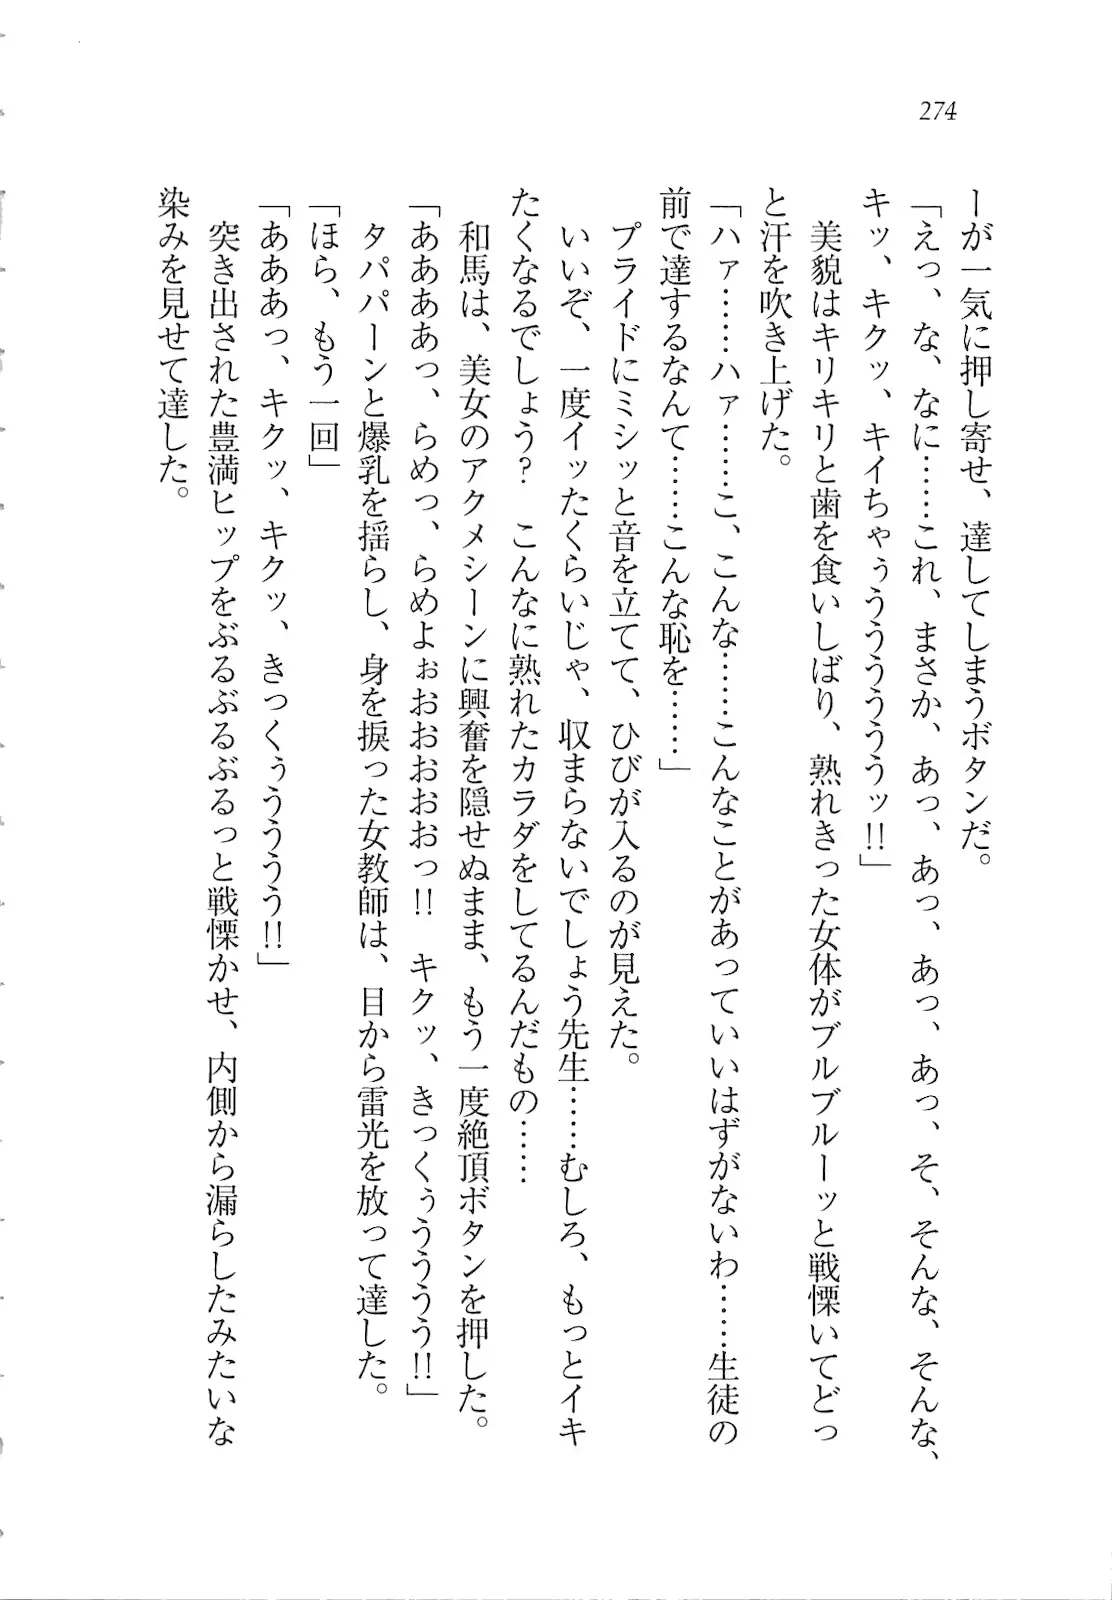 274
ーが一気に押し寄せ、達してしまうボタンだ。
「えっ、な、なに……これ、まさか、あっ、あっ、あっ、あっ、そ、そんな、そんな、
キッ、キクッ、キイちゃぅうううううッ!!」
美貌はキリキリと歯を食いしばり、熟れきった女体がブルブルーッと戦慄いてどっ
と汗を吹き上げた。
「ハァ……ハァ……こ、こんな……こんなことがあっていいはずがないわ……生徒の
前で達するなんて……こんな恥を……」
プライドにミシッと音を立てて、ひびが入るのが見えた。
いいぞ、一度イッたくらいじゃ、収まらないでしょう先生……むしろ、もっとイキ
たくなるでしょう? こんなに熟れたカラダをしてるんだもの……
和馬は、美女のアクメシーンに興奮を隠せぬまま、もう一度絶頂ボタンを押した。
「ああああっ、らめっ、らめよぉおおおおおっ!! キクッ、きっくぅうううう!!」
タパパーンと爆乳を揺らし、身を捩った女教師は、目から雷光を放って達した。
「ほら、もう一回」
「あああっ、キクッ、キクッ、きっくぅうううう!!」
突き出された豊満ヒップをぶるぶるぶるっと戦慄かせ、内側から漏らしたみたいな
染みを見せて達した。